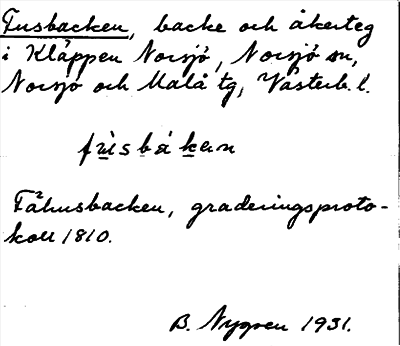 Fusbacken, backe och åkerteg
i Kläppen Norsjö, Norsjö sn,
Norsjö och Malå tg, Västerb. l.
fùsbákan
Fähusbacken, graderingsproto-
koll 1810.
B. Nygren 1931.